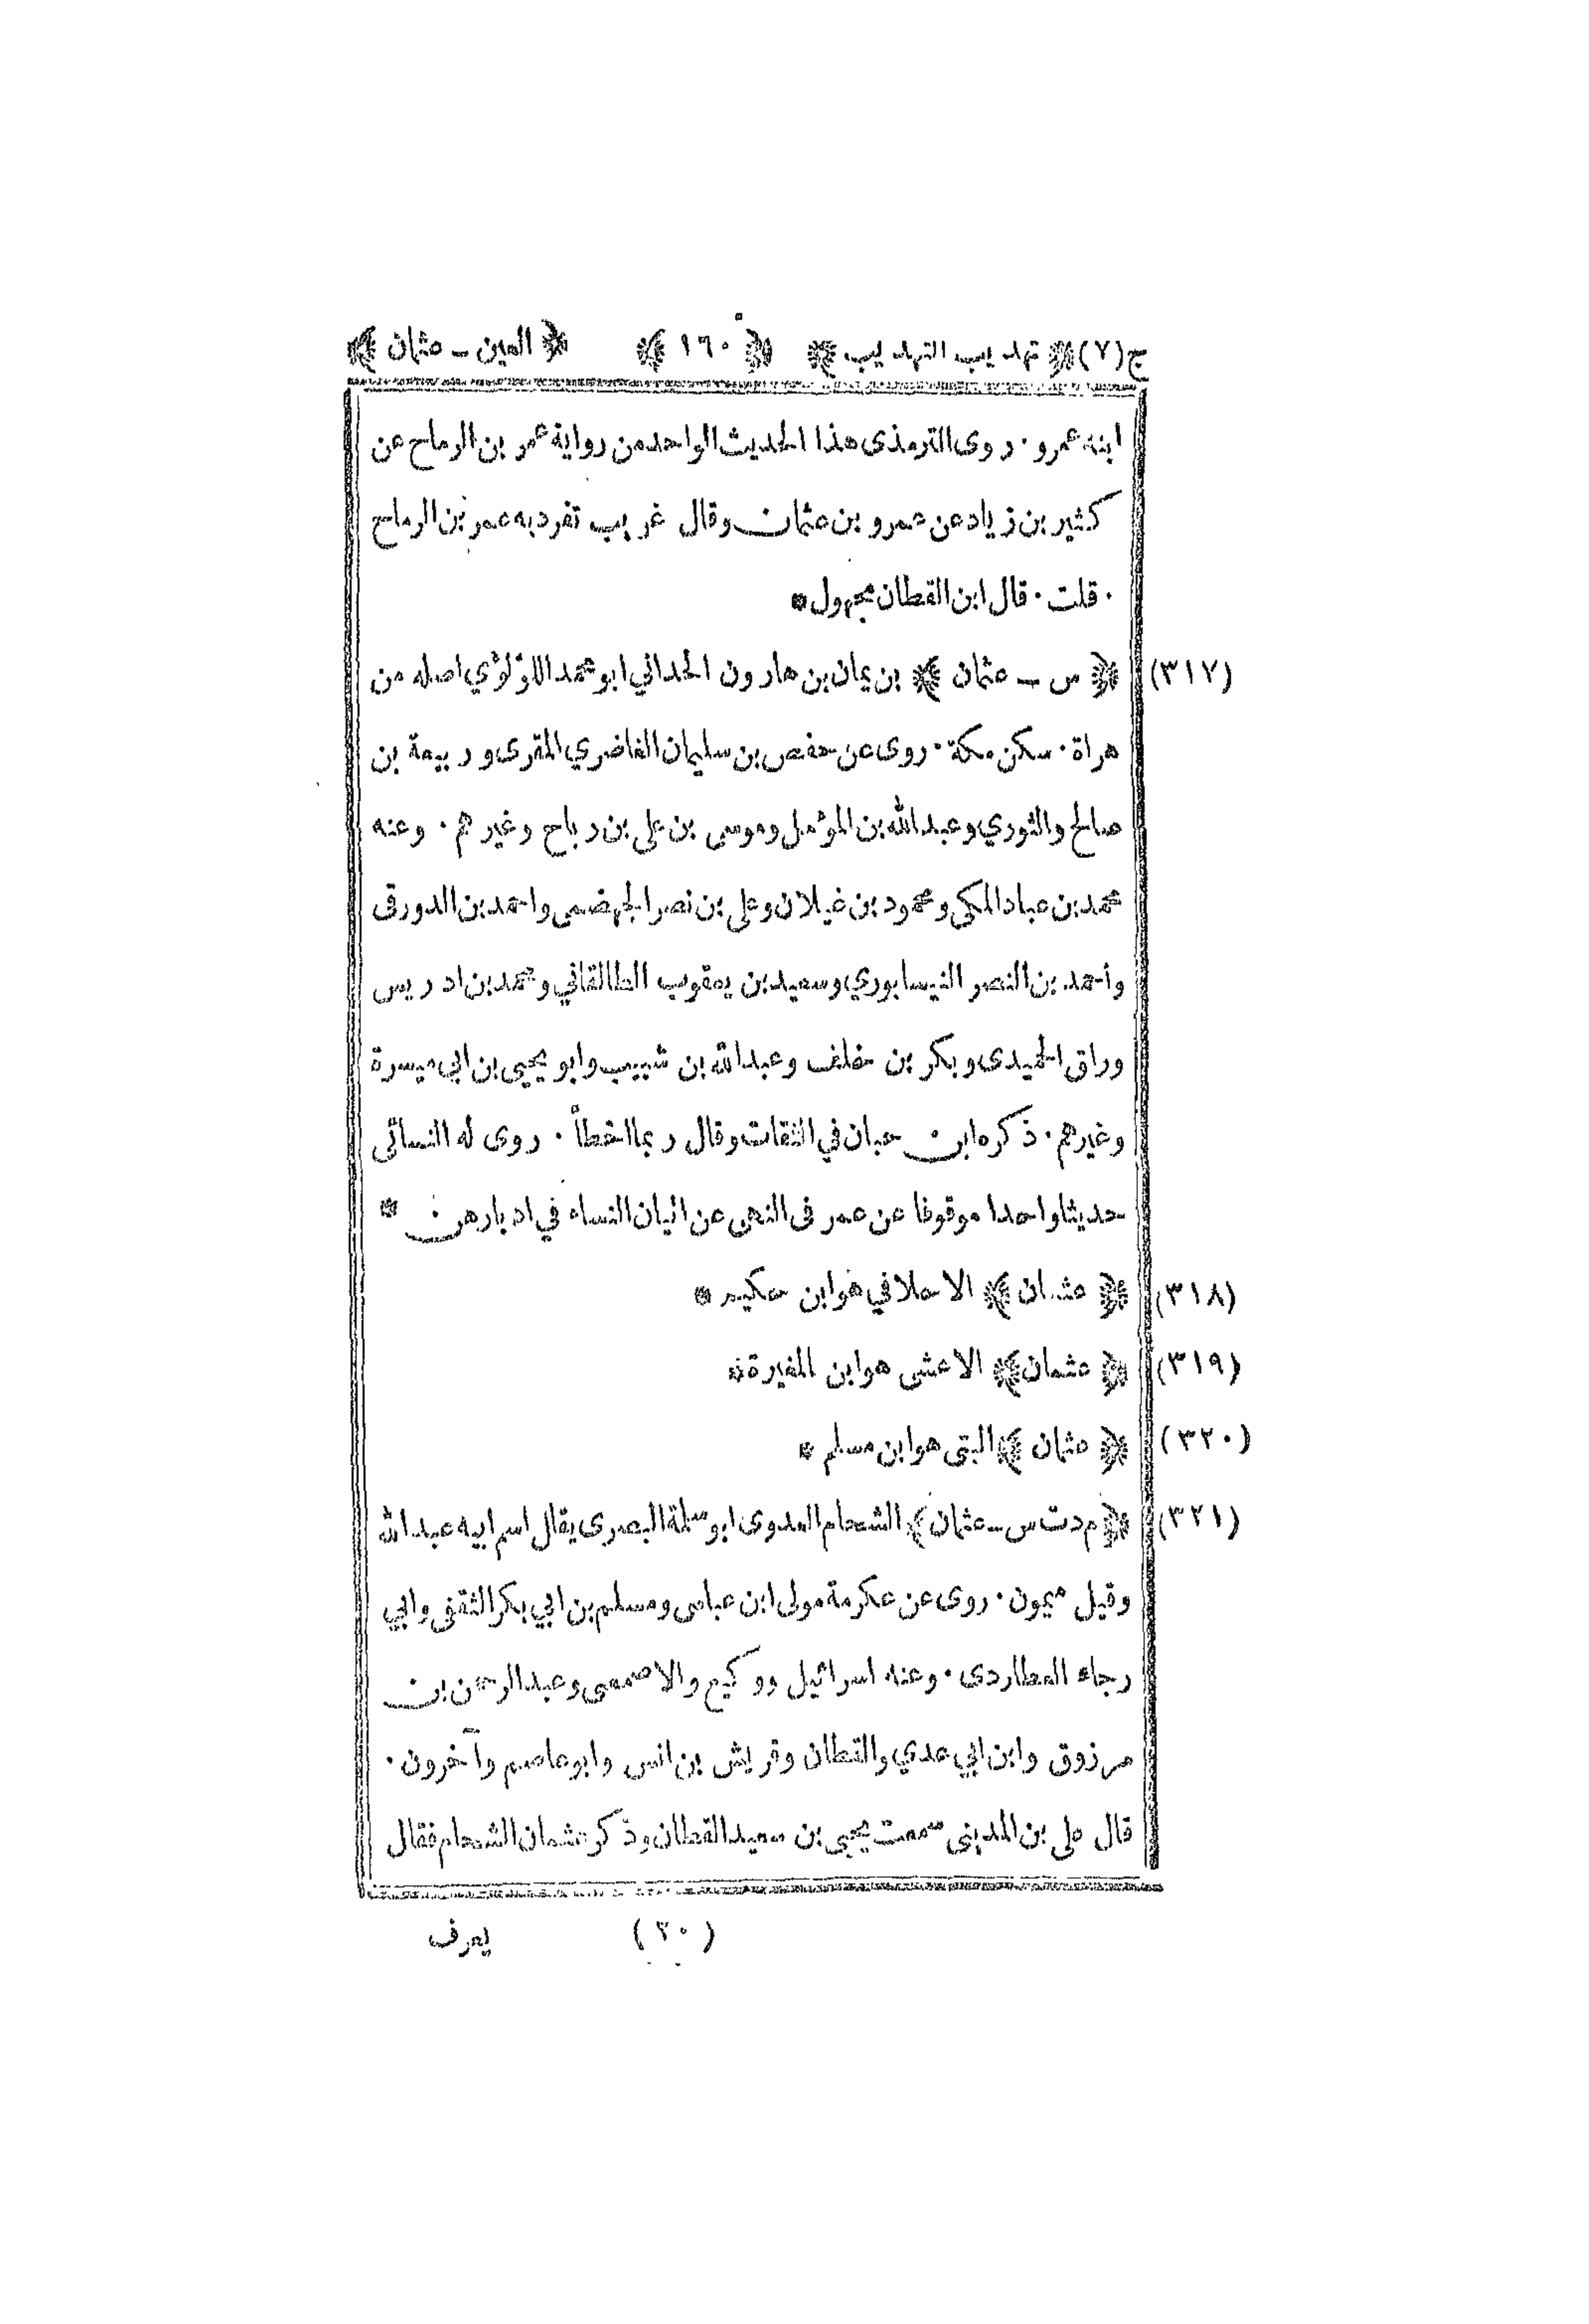 ج(٧) ﴿ تهذيب التهذيب ﴾ ﴿ ١٦٠ ﴾ ﴿ العين ــ عثمان ﴾
ابنه عمرو · روى الترمذى هذا الحديث الواحد من رواية عمر بن الرماح عن
كثير بن زياد عن عمرو بن عثمان وقال غريب تفرد به عمر بن الرماح
· قلت · قال ابن القطان مجهول *
(٣١٧) ﴿ س ــ عثمان ﴾ بن يمان بن هارون الحداني ابو محمد اللؤلؤي اصله من
هراة · سكن مكة · روى عن حفص بن سليمان الغاضري المقرى وربيعة بن
صالح والثوري وعبد الله بن المؤمل وموسى بن على بن رباح وغيرهم · وعنه
محمد بن عباد المكى ومحمود بن غيلان وعلى بن نصر الجهضمى واحمد بن الدورقى
وأحمد بن النصر النيسابوري وسعيد بن يعقوب الطالقاني ومحمد بن ادريس
وراق الحميدى وبكر بن خلف وعبد الله بن شبيب وابو يحيى بن ابى ميسرة
وغيرهم · ذكره ابن حبان في الثقات وقال ربما اخطأ · روى له النسائى
حديثا واحدا موقوفا عن عمر فى النهى عن اتيان النساء في ادبارهن *
(٣١٨) ﴿ عثمان ﴾ الاحلافي هو ابن حكيم *
(٣١٩) ﴿ عثمان ﴾ الاعشى هو ابن المغيرة *
(٣٢٠) ﴿ عثمان ﴾ البتى هو ابن مسلم *
(٣٢١) ﴿ م د ت س ــ عثمان ﴾ الشحام العدوى ابو سلمة البصرى يقال اسم ابيه عبد الله
وقيل ميمون · روى عن عكرمة مولى ابن عباس ومسلم بن ابي بكر الثقفى وابي
رجاء العطاردى · وعنه اسرائيل ووكيع والاصمعى وعبد الرحمن بن
مرزوق وابن ابي عدي والقطان وقريش بن انس وابو عاصم وآخرون ·
قال على بن المدينى سمعت يحيى بن سعيد القطان وذكر عثمان الشحام فقال
(٢٠) يعرف